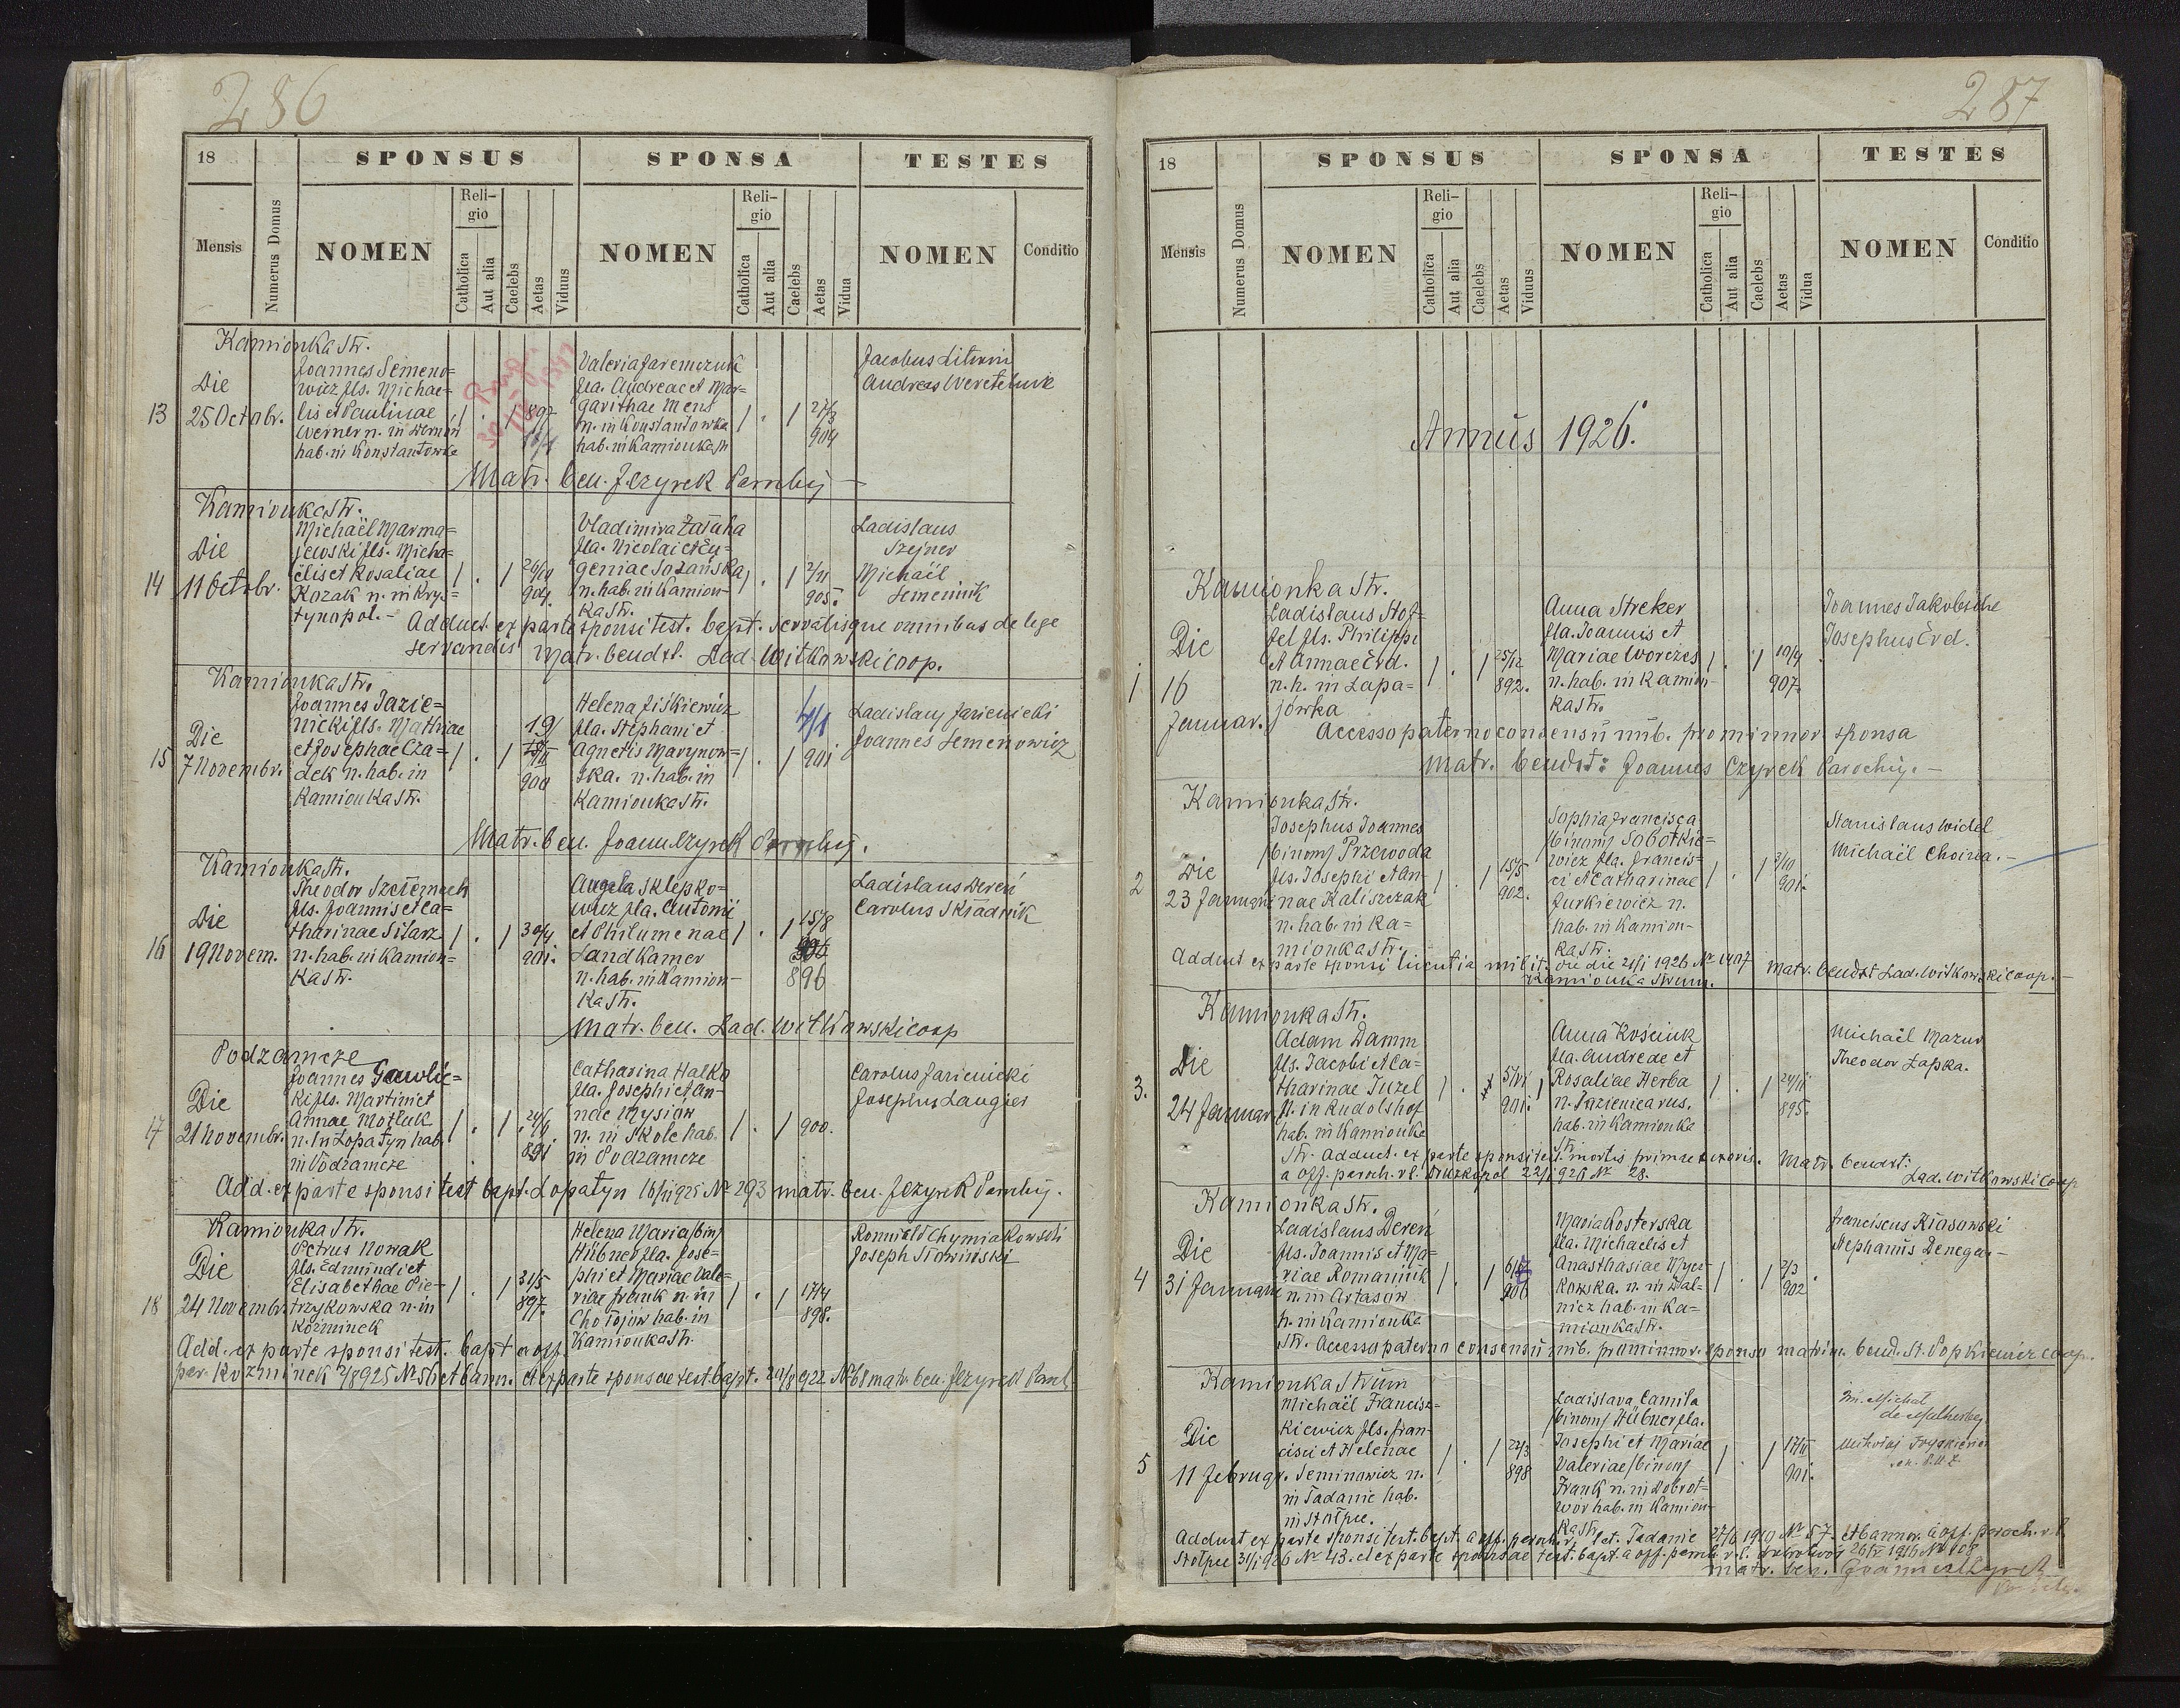 286
18
SPONSUS
SPONSA
TESTES
Mensis
Numerus Domus
NOMEN
Reli-
gio
Catholica
Aut alia
Caelebs
Aetas
Viduus
NOMEN
Reli-
gio
Catholica
Aut alia
Caelebs
Aetas
Vidua
NOMEN
Conditio
Kamionka Str.
13
Die
25 Octobr.
Joannes Semeno=
wicz fls. Michae=
lis et Paulinae
Werner n. in
hab. in Konstantowka
1 . 1 897
Valeria Jaremczuk
fla. Andreae et Mar=
garithae Mens
n. in Konstantowka
hab. in Kamionka Str
1 . 1 27/3
904
Jacobus Litwin
Andreas Wereteluik
Matr. ben. J. Czyrek Paroch̄y —
Kamionka Str.
14
Die
11 Octobr.
Michaël Marma=
jewski fls. Micha=
ëlis et Rosaliae
Kozak n. in Krys=
tynopol. —
1 . 1 29/10
904.
Vladimira Załuha
fla. Nicolai et Eu=
geniae Sozańska
n. hab. in Kamion-
ka Str.
1 . 1 2/11
905.
Ladislaus
Szejner
Michaël
Semeniuk
Adduct. ex parte sponsi test. bapt. servatisque omnibus de lege
servandis matr. bendxt. Lad. Witkowski coop.
Kamionka Str.
15
Die
7 Novembr.
Joannes Jazie=
nicki fls. Mathiae
et Josephae Cza=
dek n. hab. in
Kamionka Str.
1 . 1 19/
900
Helena Ziśkiewicz
fla. Stephani et
Agnetis Marynow=
ska. n. hab. in
Kamionka Str.
1 . 1 4/1
901
Ladislaus Jazienicki
Joannes Semenowicz
Matr. ben. Joann. Czyrek Parochy.
Kamionka Str.
16
Die
19 Novem.
Theodor Szczeżnach
fls. Joannis et Ca=
tharinae Sitarz
n. hab. in Kamion=
ka Str.
1 . 1 30/4
901.
Angela Sklepko=
wicz fla. Antonii
et Philumenae
Landkamer
n. hab. in Kamion-
ka Str.
1 . 1 15/8
896
Ladislaus Dereń
Carolus Składnik
Matr. ben. Lad. Witkowski coop
Podzamcze
17
Die
21 Novembr.
Joannes Gawlic=
ki fls. Martini et
Annae Motluk
n. in Łopatyn hab.
in Podzamcze
1 . 1 24/6
891
Catharina Halko
fla. Josephi et An=
nae Mysiów
n. in Skole hab.
in Podzamcze
1 . 1 900.
Carolus Jazienicki
Josephus Laugier
Add. ex parte sponsi test bapt. Łopatyn 16/11 925 № 293 matr. ben. J. Czyrek Paroch̄y.
Kamionka Str.
18
Die
24 Novembr.
Petrus Nowak
fls. Edmundi et
Elisabethae Pie=
trzykowska n. in
Koźminek
1 . 1 31/5
897.
Helena Maria /bin/
Hübner fla. Jose=
phi et Mariae Vale=
riae Frank n. in
Chołojów hab. in
Kamionka Str.
1 . 1 17/4
898.
Romuald Chymiakowski
Joseph Słowiński
Add. ex parte sponsi test. bapt a off.
par. Koźminek 2/8 925 № 56 et bann. et ex parte sponsae test. bapt. 20/8 922 № 68 matr. ben. J. Czyrek Paroch
287
18
SPONSUS
SPONSA
TESTES
Mensis
Numerus Domus
NOMEN
Reli-
gio
Catholica
Aut alia
Caelebs
Aetas
Viduus
NOMEN
Reli-
gio
Catholica
Aut alia
Caelebs
Aetas
Vidua
NOMEN
Conditio
Annus 1926.
Kamionka Str.
1
Die
16
Januar.
Ladislaus Stof=
fel fls. Philippi
et Annae Erd.
n. h. in Łapa=
jówka
1 . 1 25/12
892.
Anna Streker
fla. Joannis et
Mariae Worczes
n. hab. in Kamion-
ka Str.
1 . 1 10/4
907.
Joannes Jakubsche
Josephus Erd.
Accesso paterno consensū nūb. pro minnor. sponsa
Matr. bendxt: Joannes Czyrek Parochy. —
Kamionka Str.
2
Die
23 Januarii
Josephus Joannes
/binom/ Przewoda
fls. Josephi et An=
nae Kaliszczak
n. hab. in Ka=
mionka Str.
1 . 1 15/5
902.
Sophia Francisca
/binom/ Sobotkie=
wicz fla. Francis=
ci et Catharinae
Jurkiewicz n.
hab. in Kamion-
ka Str.
1 . 1 3/10
901.
Stanislaus Widel
Michaël Choina. —
Adduct ex parte sponsi licentia milit. dd die 21/1 1926 № 1407 matr. bendxt Lad. Witkowski coop. —
Kamionka Strum.
Kamionka Str.
3.
Die
24 Januar.
Adam Damm
fls. Jacobi et Ca=
tharinae Juzel
n. in Rudolshof
hab. in Kamionka
1 . 5/VI 1
901.
Anna Kościuk
fla. Andreae et
Rosaliae Herba
n. Jazienica rus.
hab. in Kamionka
Str.
1 . 1 24/11
895.
Michaël Mazur
Theodor Łapka.
Str. adduct. ex parte sponsi test. mortis primae uxoris. Matr. bendxt:
a off. paroch. r. l. Drużkopol 22/1 926 № 28. Lad. Witkowski Coop
Kamionka Str.
4
Die
31 Januarii
Ladislaus Dereń
fls. Joannis et Ma=
riae Romaniuk
n. in Artasow
h. in Kamionka
1 . 1 6/
906
Maria Kosterska
fla. Michaelis et
Anasthasiae Wyer-
kowska. n. in Dal=
nicz hab. in Ka=
mionka Str.
1 . 1 2/3
902
Franciscus Krasowski
Stephanus Denega. —
Str. Accesso paterno consensū nūb. pro minnor. sponso matrim. bend. St. Popkiewicz coop.
Kamionka Strum
5
Die
11 Februar.
Michaël Francisz=
kiewicz fls. Fran-
cisci et Helenae
Seminowicz n.
in Tadanie hab.
in Stołpce.
1 . 1 22/3
898
Ladislava Camila
/binom/ Hübner fla.
Josephi et Mariae
Valeriae /binom/
Frank n. in Dobrot=
wór hab. in Kamion-
ka Str.
1 . 1 17/II
901.
Michał
de Malherbe
Mikołaj
Adduct ex parte sponsi test. bapt. a off. paroch. r. l. Tadanie 27/6 1910 № 57. et bannor. a off. paroch. r. l.
Stołpce 31/1 926 № 43. et ex parte sponsae test. bapt. a off. paroch. r. l. Dobrotwór 26/IV 1916 № 108
matr. ben. Joannes Czyrek